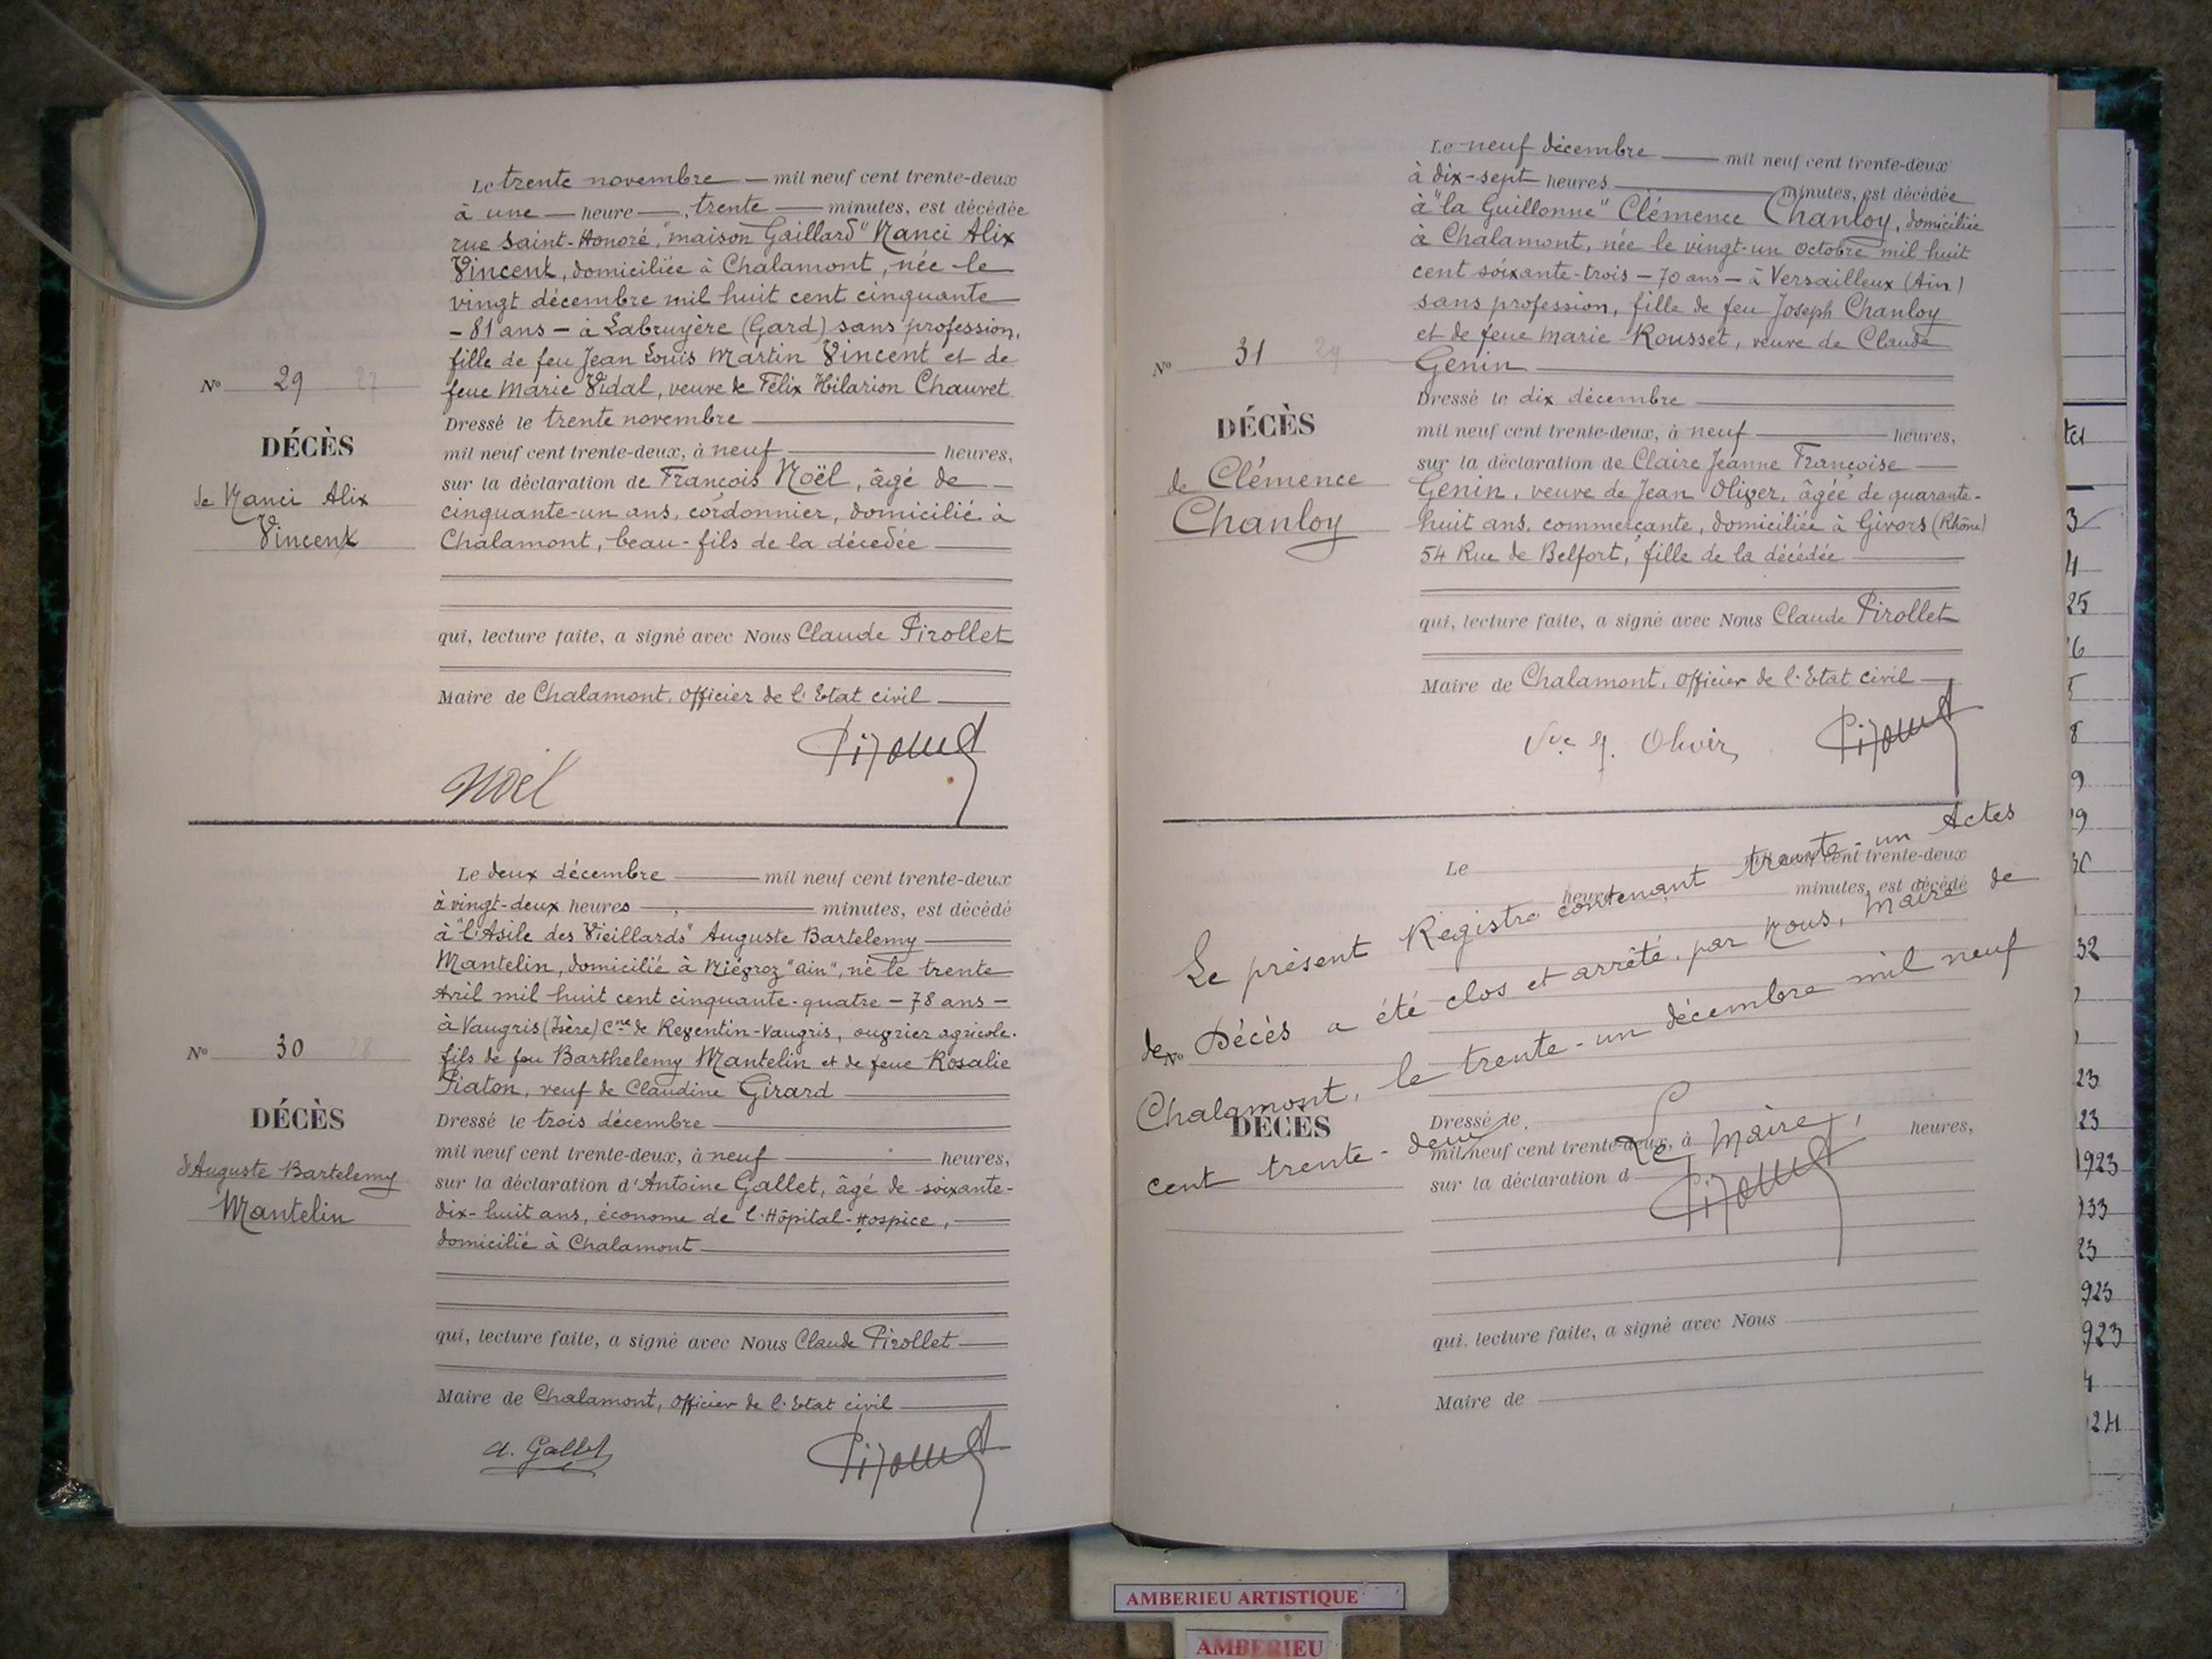 Le trente novembre — mil neuf cent trente-deux
à une — heure —, trente — minutes, est décédée
rue Saint-Honoré, "maison Gaillard" Nanci Alix
Vincent, domiciliée à Chalamont, née le
vingt décembre mil huit cent cinquante
- 81 ans - à Labruyère (Gard) sans profession,
fille de feu Jean Louis Martin Vincent et de
feue Marie Vidal, veuve de Félix Hilarion Chauvet
Dressé le trente novembre
mil neuf cent trente-deux, à neuf heures,
sur la déclaration de François Noël, âgé de
cinquante-un ans, cordonnier, domicilié à
Chalamont, beau-fils de la décédée
qui, lecture faite, a signé avec Nous Claude Pirollet
Maire de Chalamont, officier de l'Etat civil
Noël
Nº 29 27
DÉCÈS
de Nanci Alix
Vincent
Le deux décembre — mil neuf cent trente-deux
à vingt-deux heures —, — minutes, est décédé
à "l'Asile des Vieillards" Auguste Bartelemy
Mantelin, domicilié à Niégroz "ain", né le trente
Avril mil huit cent cinquante-quatre - 78 ans -
à Vaugris (Isère) Cne de Reventin-Vaugris, ouvrier agricole.
fils de feu Barthelemy Mantelin et de feue Rosalie
Piaton, veuf de Claudine Girard
Dressé le trois décembre
mil neuf cent trente-deux, à neuf heures,
sur la déclaration d'Antoine Gallet, âgé de soixante-
dix-huit ans, économe de l'Hôpital-Hospice,
domicilié à Chalamont
qui, lecture faite, a signé avec Nous Claude Pirollet
Maire de Chalamont, officier de l'Etat civil
A. Gallet
Nº 30 28
DÉCÈS
d'Auguste Bartelemy
Mantelin
Le neuf décembre — mil neuf cent trente-deux
à dix-sept heures — minutes, est décédée
à "la Guillonne" Clémence Chanloy, domiciliée
à Chalamont, née le vingt-un Octobre mil huit
cent soixante-trois - 70 ans - à Versailleux (Ain)
sans profession, fille de feu Joseph Chanloy
et de feue Marie Rousset, veuve de Claude
Genin
Dressé le dix décembre
mil neuf cent trente-deux, à neuf heures,
sur la déclaration de Claire Jeanne Françoise
Genin, veuve de Jean Olivier, âgée de quarante-
huit ans, commerçante, domiciliée à Givors (Rhône)
54 Rue de Belfort, fille de la décédée
qui, lecture faite, a signé avec Nous Claude Pirollet
Maire de Chalamont, officier de l'Etat civil
Vve J. Olivier
Nº 31 29
DÉCÈS
de Clémence
Chanloy
Le mil neuf cent trente-deux
heures minutes, est décédé
Le présent Registre contenant trente-un Actes
de Décès a été clos et arrêté, par Nous, Maire de
Chalamont, le trente-un décembre mil neuf
cent trente-deux
Le Maire,
Nº
DÉCÈS
Dressé le
mil neuf cent trente-deux, à heures,
sur la déclaration d
qui, lecture faite, a signé avec Nous
Maire de
25
32
23
23
1923
933
23
923
923
24
AMBERIEU ARTISTIQUE
AMBERIEU